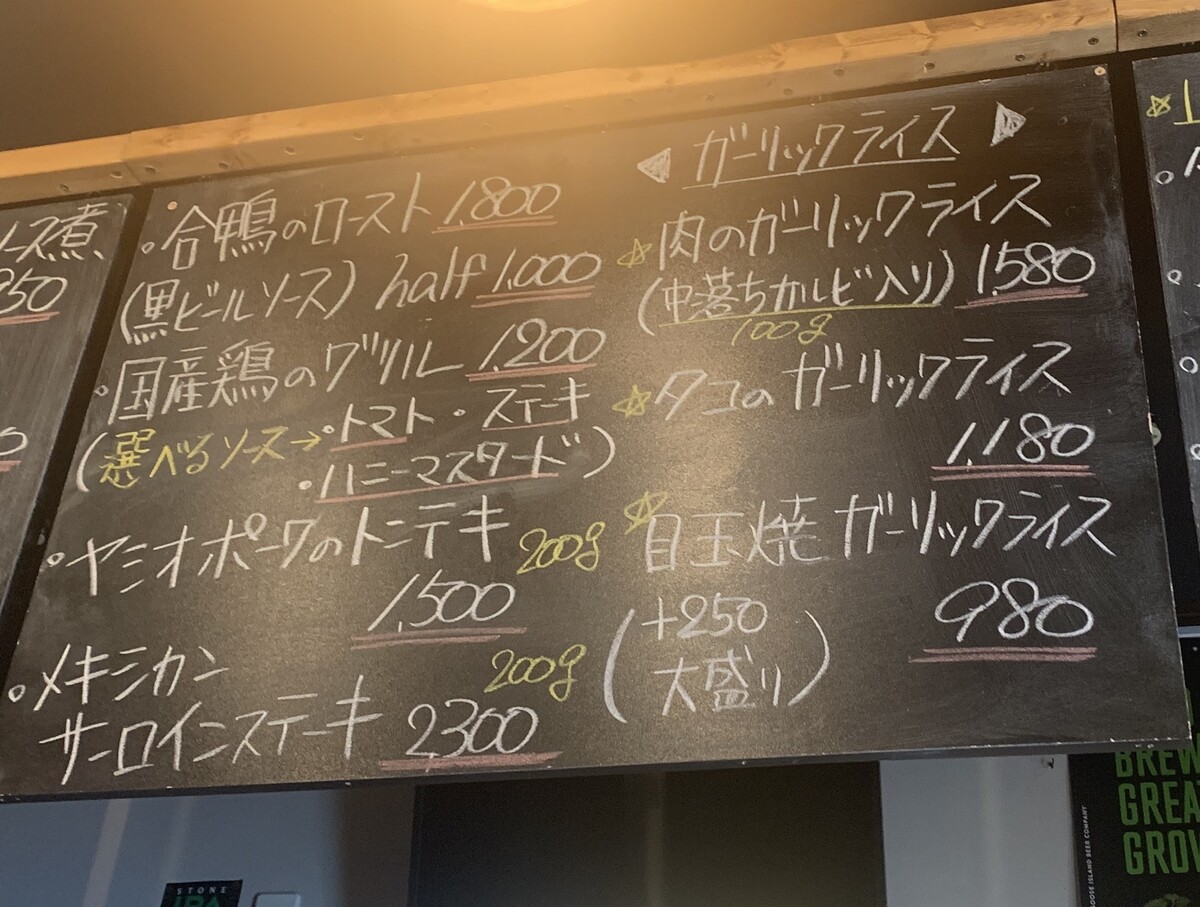 ソース煮
950
・合鴨のロースト 1,800
(黒ビールソース) half 1,000
・国産鶏のグリル 1,200
(選べるソース→・トマト・ステーキ
・ハニーマスタード)
・ヤミオポークのトンテキ 200g
1,500
・メキシカン 200g
サーロインステーキ 2,300
◀ ガーリックライス ▶
☆肉のガーリックライス
(中落ちカルビ入り) 1,580
100g
☆タコのガーリックライス
1,180
☆目玉焼ガーリックライス
980
(+250
大盛り)
STONE
IPA
BREW
GREA
GROW
GOOSE ISLAND BEER COMPANY